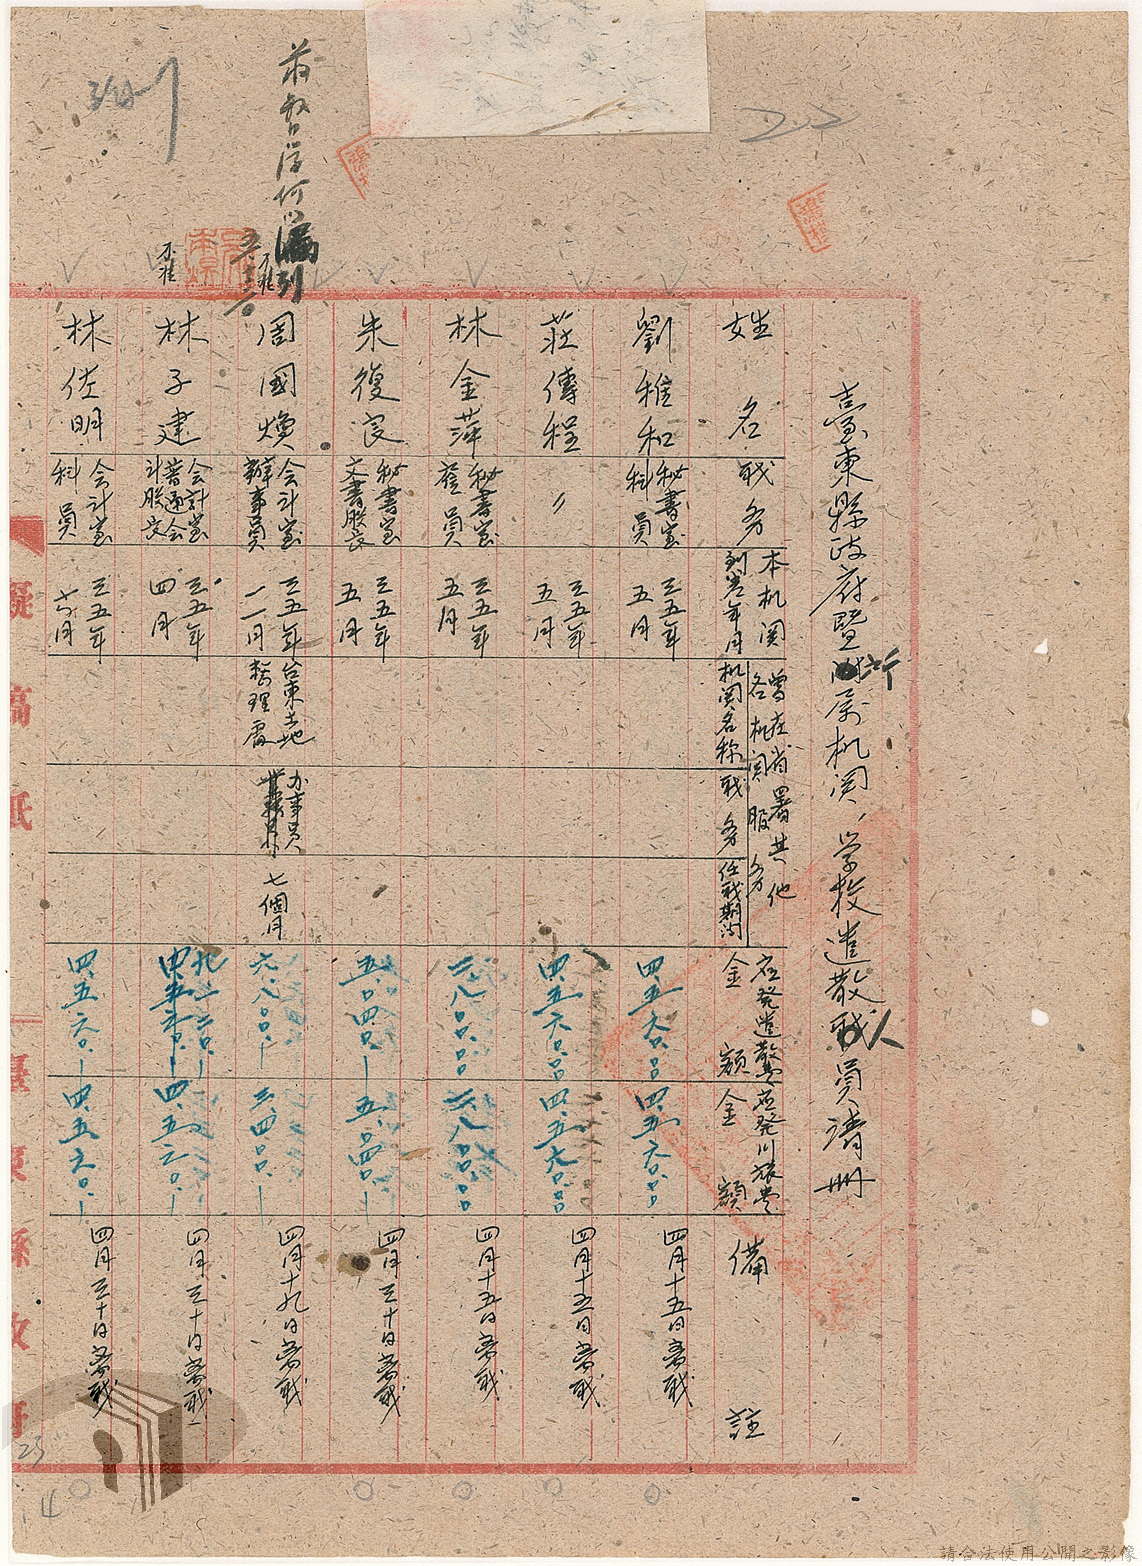 臺東縣政府暨所屬机関、学校遣散職員清册
姓名
職务
本机関
到差年月
曾在省署其他
各机関服务
机関名称
職务
任職期间
应發遣散費
金額
应發川旅费
金額
備註
劉稚和
秘書室
科員
三五年
五月
四、五六〇.〇〇
四、五六〇.〇〇
四月十五日离職
莊傳程
〃
三五年
五月
四、五六〇.〇〇
四、五六〇.〇〇
四月十五日离職
林金萍
秘書室
雇員
三五年
五月
二、八〇〇.〇〇
二、八〇〇.〇〇
四月十五日离職
朱復良
秘書室
文書股長
三五年
五月
五、〇四〇.—
五、〇四〇.—
四月三十日离職
周國煥
会计室
辦事員
三五年
一一月
台東土地
整理處
办事員
七個月
六、八〇〇.—
三、四〇〇.—
四月十九日离職
林子建
会計室
普通会
计股長
三五年
四月
九、一二〇.—
四、五六〇.—
四月三十日离職
林佐明
会计室
科員
三五年
六月
四、五六〇.—
四、五六〇.—
四月三十日离職
漏列
不准
不准
22
擬稿紙
臺東縣政府
23
請合法使用公開之影像